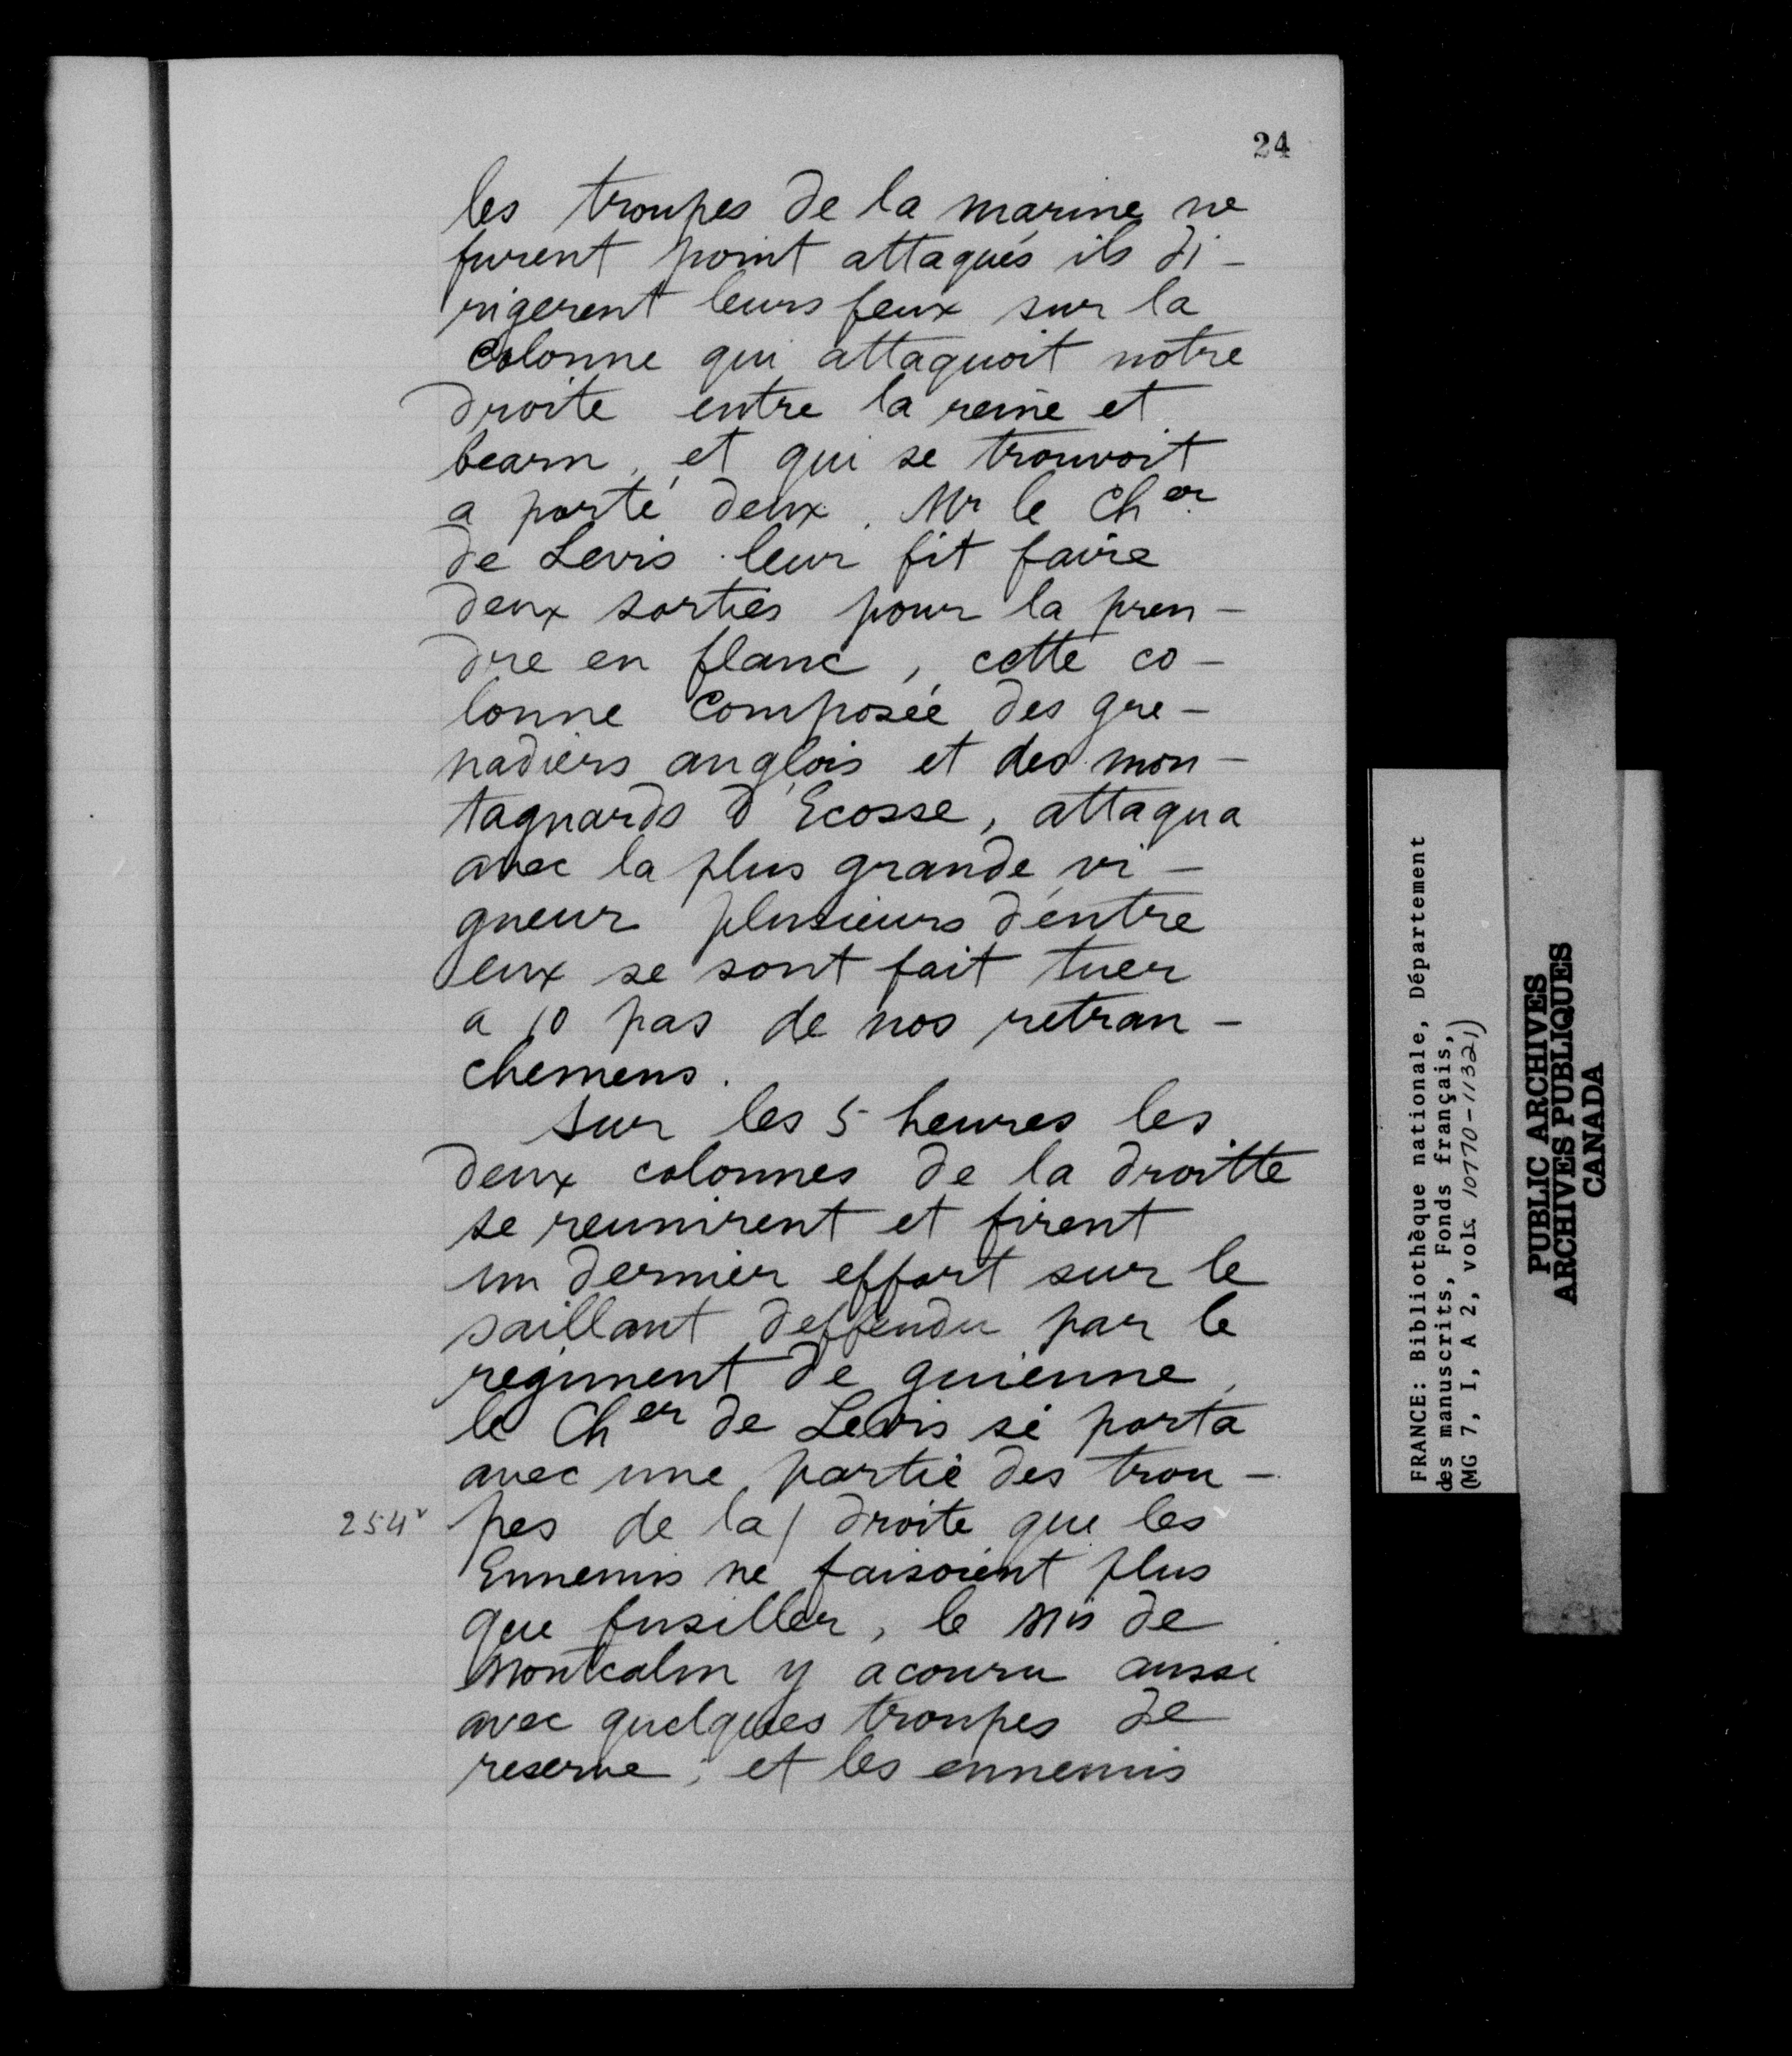 24
les troupes de la marine ne
furent point attaqués ils di-
rigerent leurs feux sur la
colonne qui attaquoit notre
droite entre la reine et
bearn, et qui se trouvoit
a porté deux. Mr le Cher
de Levis leur fit faire
deux sorties pour la pren-
dre en flanc, cette co-
lonne composée des gre-
nadiers anglois et des mon-
tagnards d'Ecosse, attaqua
avec la plus grande vi-
gueur plusieurs d'entre
eux se sont fait tuer
a 10 pas de nos retran-
chemens.
Sur les 5 heures les
deux colonnes de la droitte
se reunirent et firent
un dernier effort sur le
saillant deffendu par le
regiment de guienne,
le Cher de Levis si porta
avec une partie des trou-
254v pes de la / droite que les
Ennemis ne faisoient plus
que fusiller, le Mis de
Montcalm y acouru aussi
avec quelques troupes de
reserve; et les ennemis
FRANCE: Bibliothèque nationale, Département
des manuscrits, Fonds français,
(MG 7, I, A 2, vols. 10770-11321)
PUBLIC ARCHIVES
ARCHIVES PUBLIQUES
CANADA